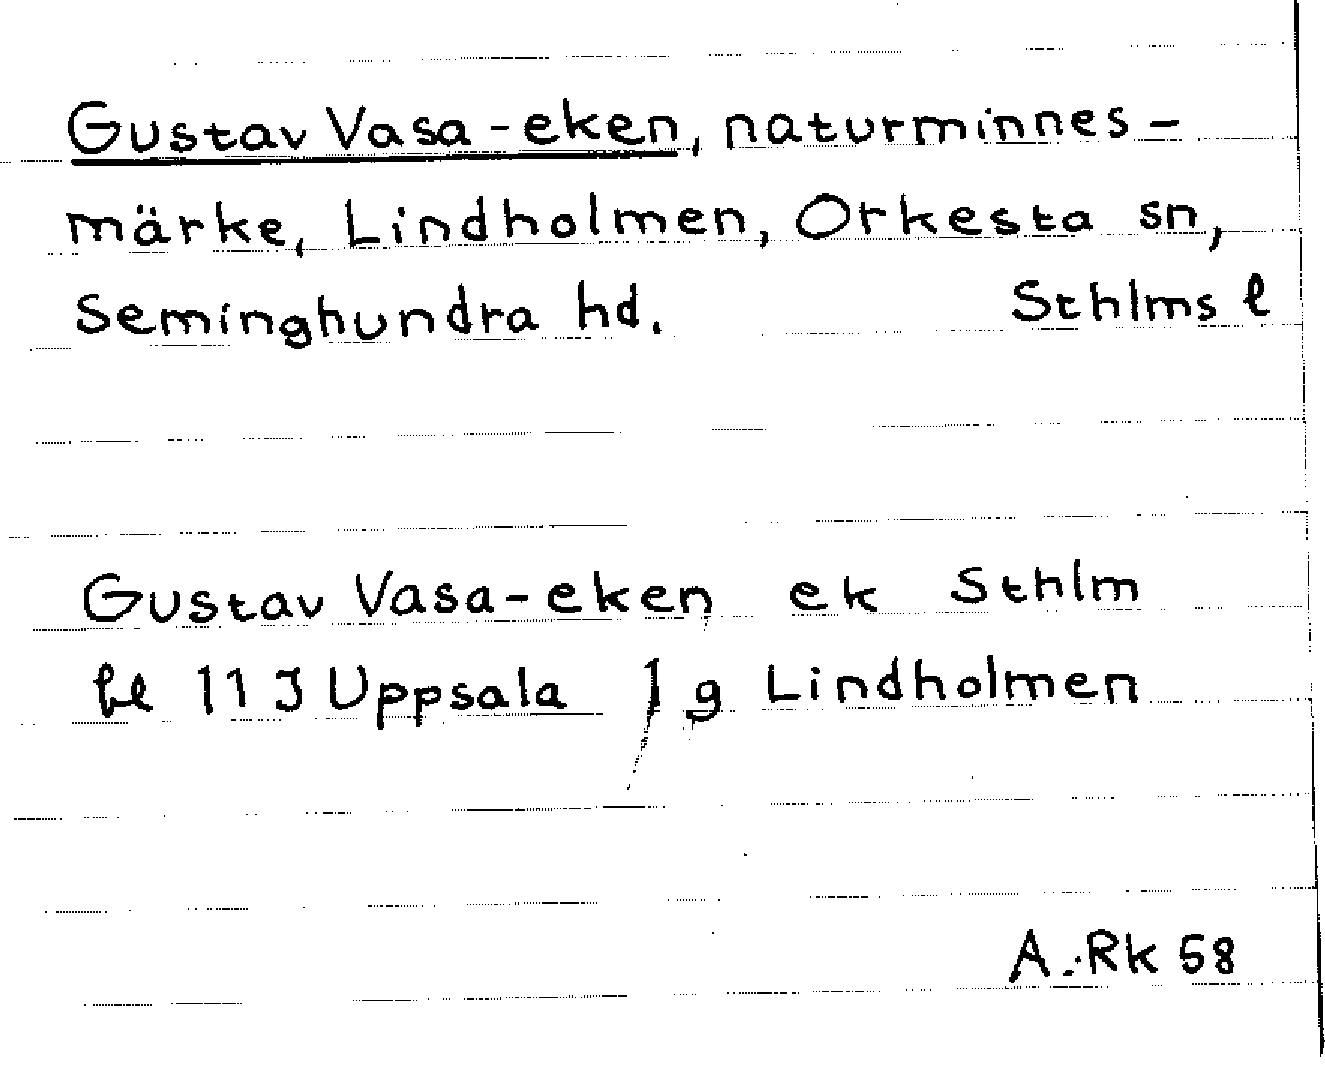 Gustav Vasa-eken, naturminnes-
märke, Lindholmen, Orkesta sn,
Seminghundra hd. Sthlms l
Gustav Vasa-eken ek Sthlm
bl 11 J Uppsala g Lindholmen
A. Rk 58